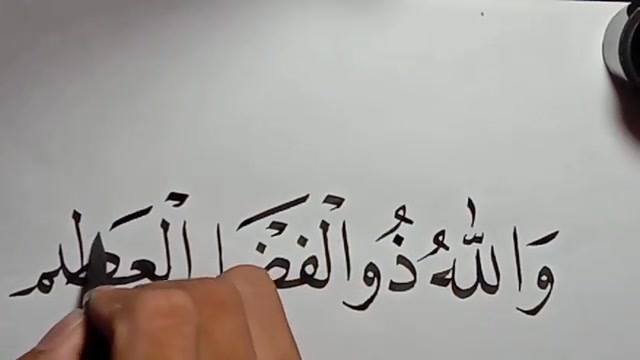 وَاللّٰهُ ذُوالْفَضْلِ الْعَظِيم